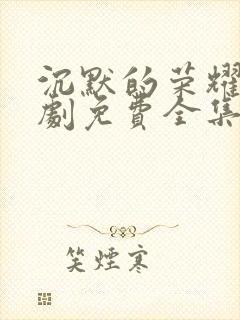 沉默的荣耀
劇免費全集
笑煙寒